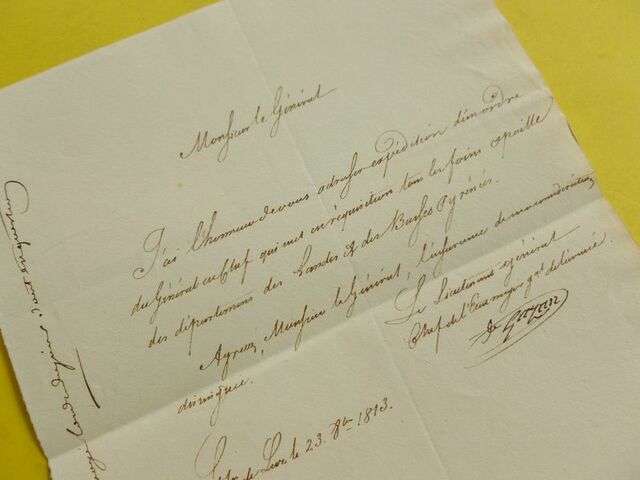 Monsieur le Général
J'ai l'honneur de vous adresser expédition d'un ordre
du Général en Chef qui met en réquisition tous les foins et paille
des départemens des Landes & des Basses Pyrénées.
Agréez, Monsieur le Général, l'assurance de ma considération
distinguée.
Le Lieutenant général
Chef de l'Etat major gal de l'armée
Cte Gazan
de Luz le 23. 8bre 1813.